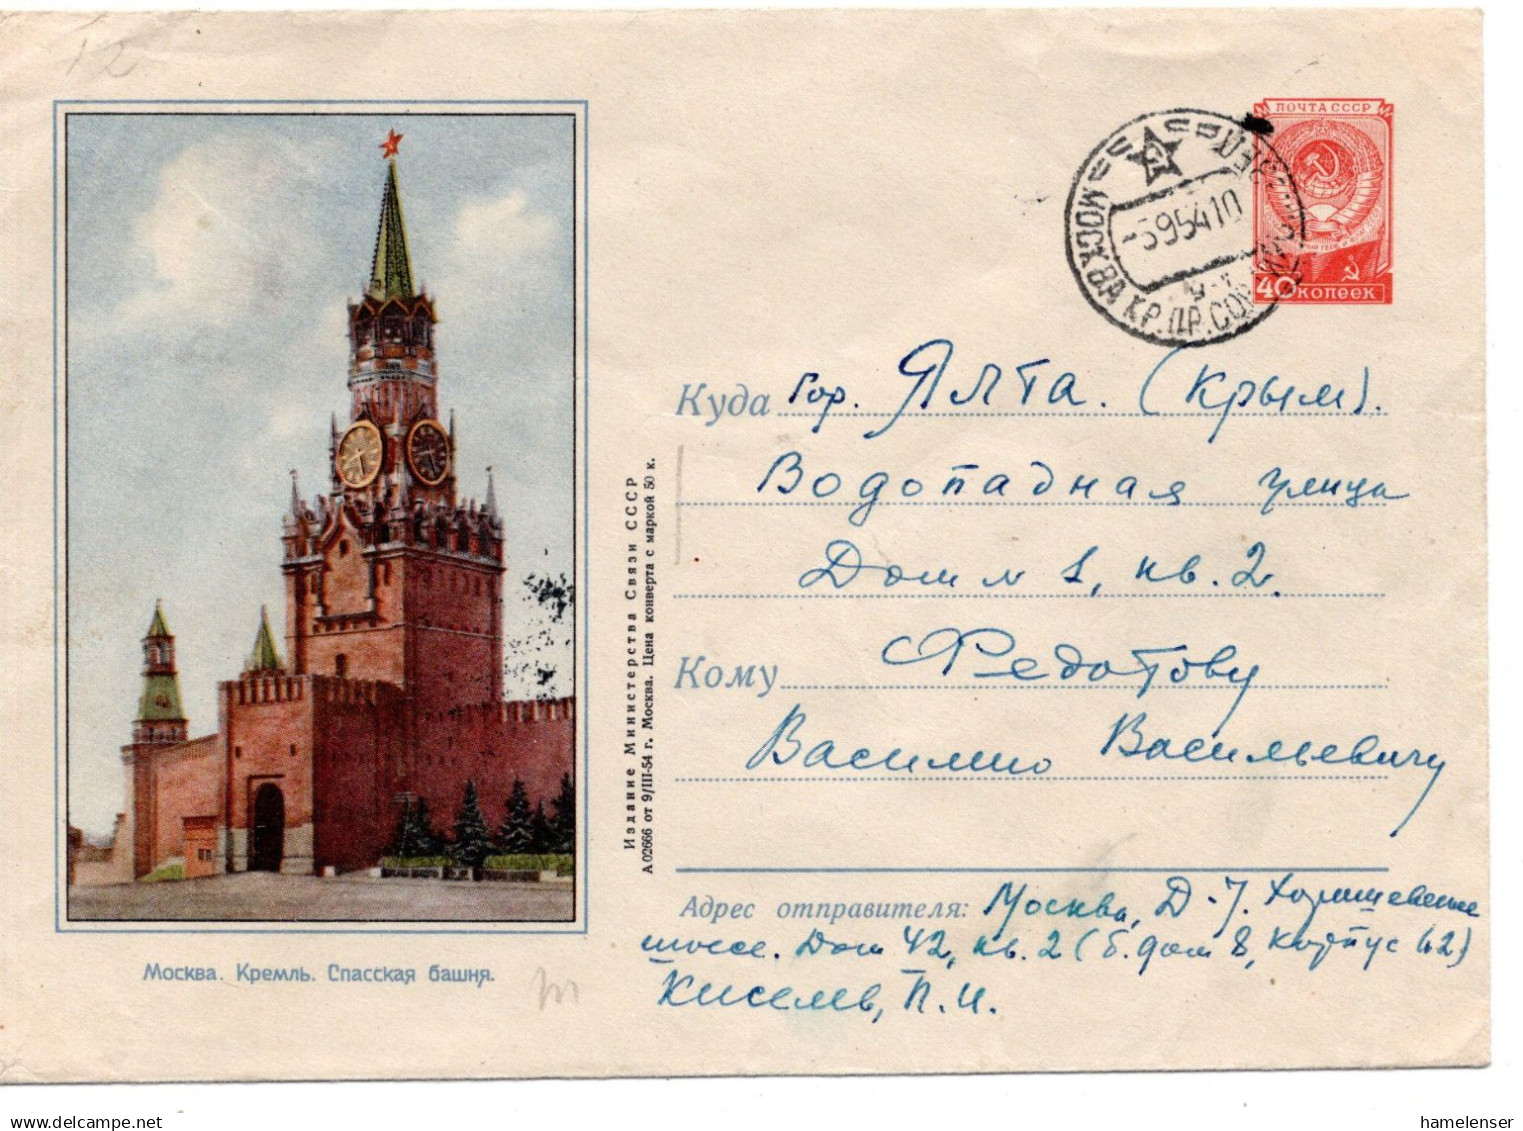 12
ПОЧТА СССР
40 КОПЕЕК
МОСКВА КР. ПР. СОЕД
-5 9 54 10
Куда Гор. Ялта. (Крым).
Водопадная улица
Дом № 1, кв. 2.
Кому Федотову
Василию Васильевичу
Адрес отправителя: Москва, Д-7. Хорошевское
шоссе. Дом 42, кв. 2 (б. дом 8, корпус 42)
Киселев, П. И.
Издание Министерства Связи СССР
А 02666 от 9/III-54 г. Москва. Цена конверта с маркой 50 к.
Москва. Кремль. Спасская башня.
hamelenser